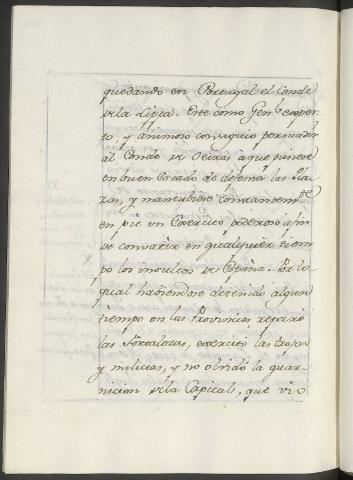 quedando en Portugal el Conde
de la Lipa. Este como Gen.l exper
to, y animoso consiguió persuadir
al Conde de Oeiras a que pusiese
en buen estado de defensa las Pla
zas, y mantubiese constantem.te
en pie un Exercito poderoso a fin
de convatir en qualquier tiem
po los insultos de España. Por lo
qual habiendose detenido algun
tiempo en las Provincias, reparó
las Fortalezas, exercitó las tropas
y milicias, y no olvidó la guar
nicion de la Capital, que vi